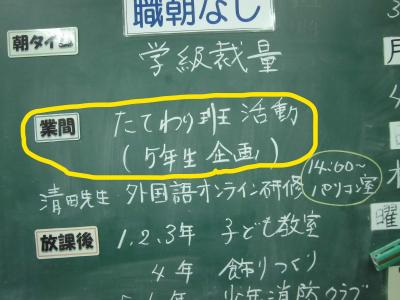 職朝なし
朝タイム 学級裁量
業間 たてわり班活動
(5年生 企画)
清田先生 外国語オンライン研修 14:00〜
パソコン室
放課後 1,2,3年 子ども教室
4年 飾りつくり
少年消防クラブ
月
曜